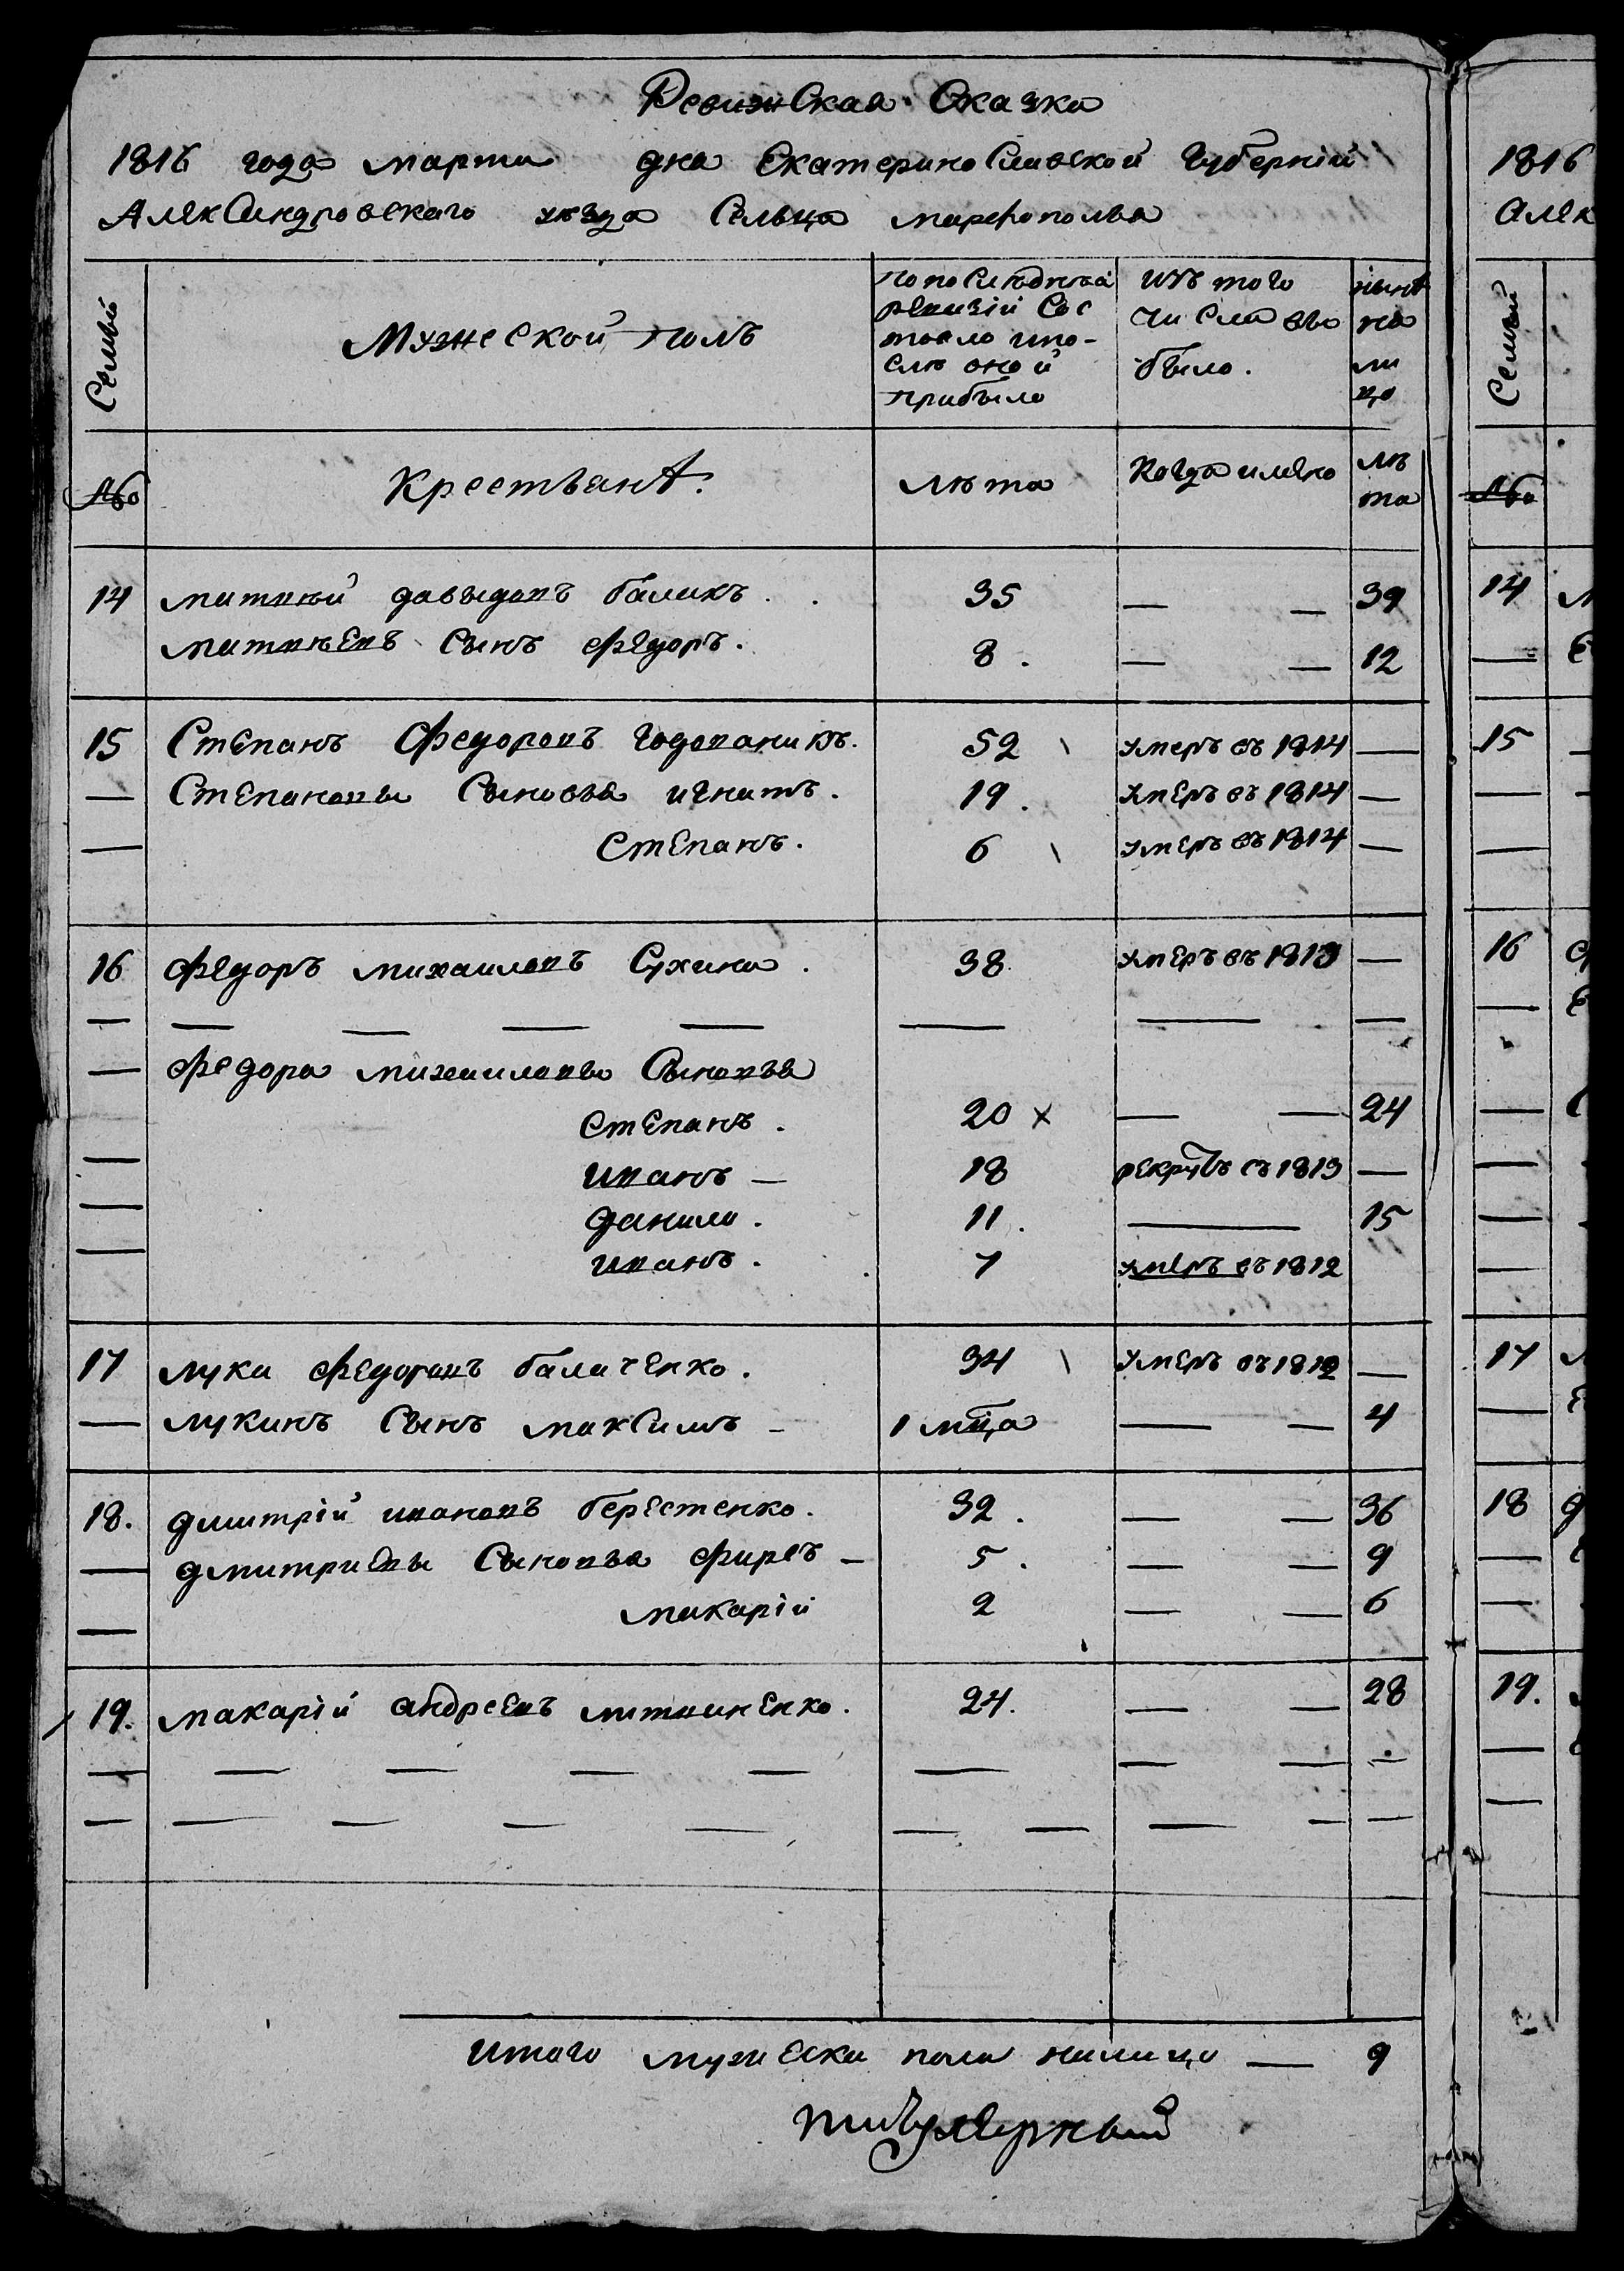 Ревизская Сказка
1816 года марта дня Екатеринославской Губерніи
Александровского уѣзда Сельца марфополья
Семьи
Мужеской полъ
по последней ревизіи Состояло и после оной прибыло
изъ того числа выбыло.
нынѣ на лицо
№
Крестьянѣ.
лѣта
Когда имяно
лѣта
14 матвѣй давыдовъ баликъ. 35 — — 39
матвѣевъ Сынъ федоръ. 8. — — 12
15 Степанъ Федоровъ 52 умеръ въ 1814 —
— Степановы Сыновья игнатъ. 19. умеръ въ 1814 —
— Степанъ. 6 умеръ въ 1814 —
16 федоръ михаиловъ Сухина. 38. умеръ въ 1813 —
— — — — — — — —
— федора михаилова Сыновья
Степанъ. 20 x — — 24
— иванъ — 18 рекрутъ въ 1813 —
— данило. 11. — 15
— иванъ. 7 умеръ въ 1812
17 лука федоровъ балаченко. 34 умеръ въ 1812 —
— лукинъ Сынъ максимъ — 1 мца — — 4
18. дмитрій ивановъ берестенко. 32. — — 36
— дмитриевы Сыновья фирсъ — 5. — — 9
— макарій 2 — — 6
19. макарій андреевъ литвиненко. 24. — — 28
— — — — — — — — —
— — — — — — — — — —
Итого мужеска пола налицо — 9
1816
Алек
Семьи
№
14
—
15
—
—
16
—
—
—
—
—
17
—
18
—
—
19.
—
—